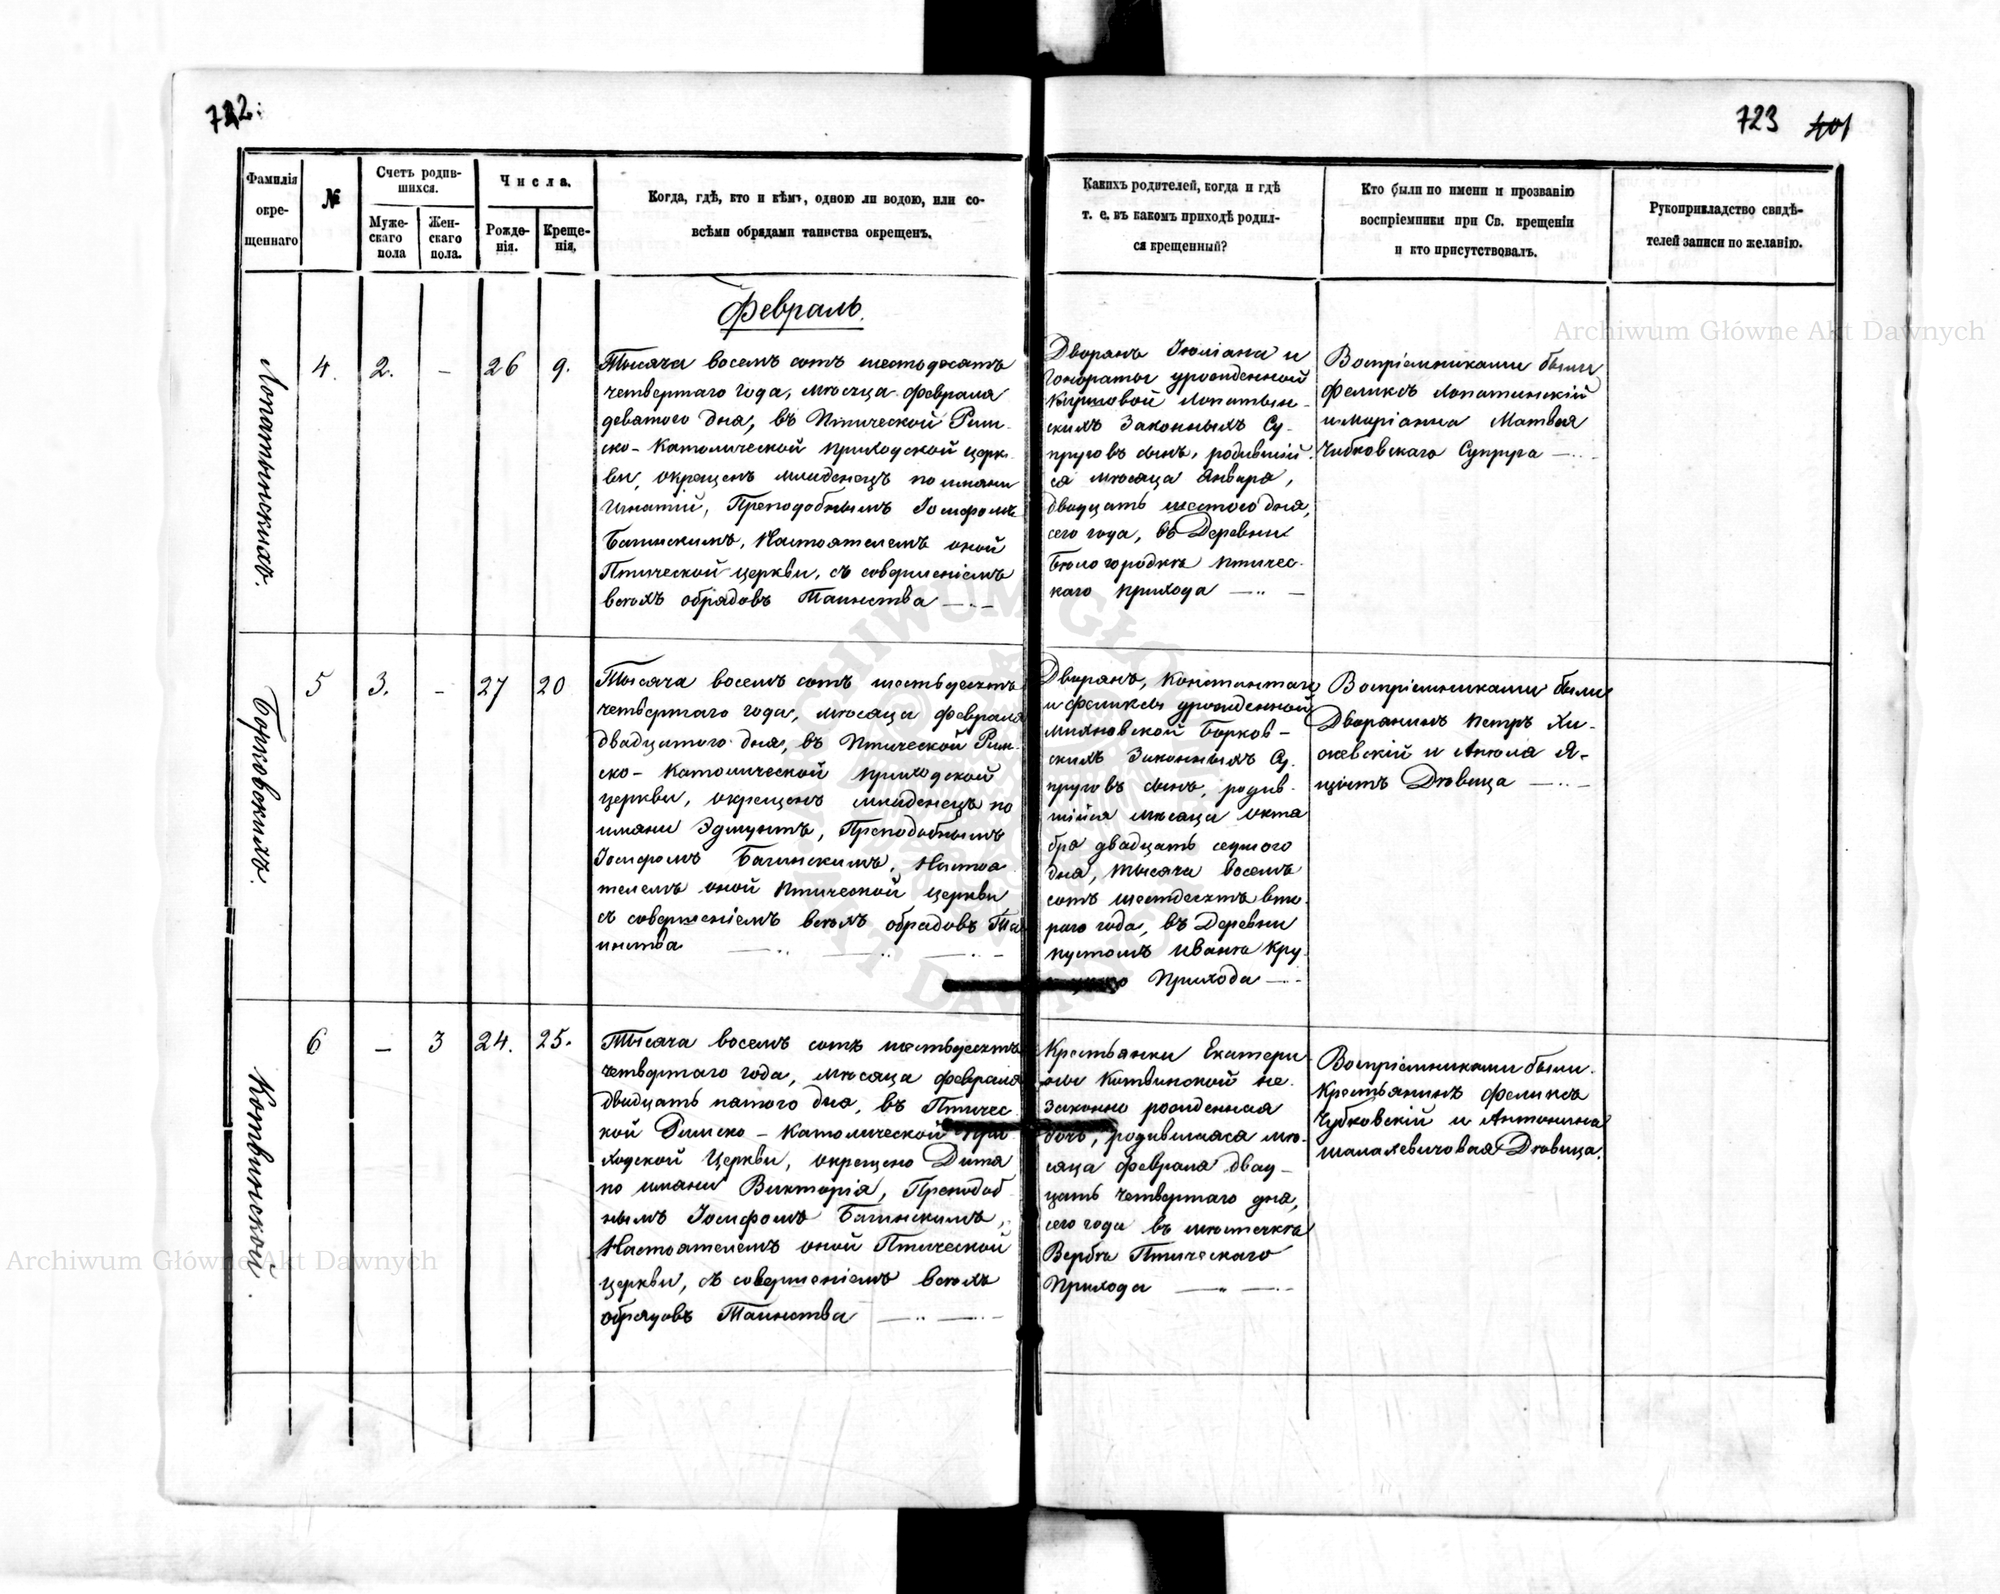 722.
723 401
Фамилія окре-щеннаго
№
Счетъ родив-шихся.
Муже-скаго пола
Жен-скаго пола.
Числа.
Рожде-нія.
Креще-нія.
Когда, гдѣ, кто и кѣмъ, одною ли водою, или со-
всѣми обрядами таинства окрещенъ.
Какихъ родителей, когда и гдѣ
т. е. въ какомъ приходѣ родил-
ся крещенный?
Кто были по имени и прозванію
воспріемники при Св. крещеніи
и кто присутствовалъ.
Рукоприкладство свидѣ-
телей записи по желанію.
Февраль.
Лопатынскихъ.
4. 2. – 26 9.
Тысяча восемъ сотъ шестьдесятъ
четвертаго года, мѣсяца февраля
девятого дня, въ Птической Рим-
ско-Католической приходской церк-
ви, окрещенъ младенецъ по имяни
Игнатій, Преподобнымъ Іосифомъ
Багинскимъ, Настоятелемъ оной
Птической церкви, съ совершеніемъ
всѣхъ обрядовъ Таинства
Дворянъ Іюліана и
Гонораты урожденной
Лопатын-
скихъ Законныхъ Су-
пруговъ сынъ, родившій-
ся мѣсяца Января,
двадцать шестого дня,
сего года, въ Деревни
Бѣлогородкѣ Птичес-
каго прихода
Воспріемниками были
Феликсъ Лопатинскій
и Маріанна Матвея
Чибковскаго Супруга
Борковскихъ.
5 3. – 27 20
Тысяча восемъ сотъ шестьдесятъ
четвертаго года, мѣсяца февраля
двадцатого дня, въ Птической Рим-
ско-Католической приходской
церкви, окрещенъ младенецъ по
имяни Эдмунтъ, Преподобнымъ
Іосифомъ Багинскимъ, Настоя
телемъ оной Птической церкви
съ совершеніемъ всѣхъ обрядовъ Та
инства
Дворянъ, Константаго
и Феликсы урожденной
Михновской Борков-
скихъ Законныхъ Су-
пруговъ сынъ, родив-
шійся мѣсяца октя
бря двадцать седмого
дня, тысяча восемъ
сотъ шестдесятъ вто-
раго года, въ Деревни
пустомъ Иванѣ Кру-
Прихода
Воспріемниками были
Дворянинъ Петръ Хи-
жевскій и Анеля Я-
цютъ Дѣвица
Котвинской.
6 – 3 24. 25.
Тысяча восемъ сотъ шестьдесятъ
четвертаго года, мѣсяца февраля
двадцать пятого дня, въ Птичес
кой Римско-Католической при
ходской Церкви, окрещено Дитя
по имяни Викторія, Преподоб
нымъ Іосифомъ Багинскимъ,
Настоятелемъ оной Птической
церкви, съ совершеніемъ всѣхъ
обрядовъ Таинства
Крестьянки Екатери
ны Котвинской не-
законно рожденная
дочь, родившаяся мѣ-
сяца февраля двад-
цать четвертаго дня,
сего года въ мѣстечкѣ
Вербѣ Птическаго
Прихода
Воспріемниками были.
Крестьянинъ Феликсъ
Чубковскій и Антонина
Дѣвица.
Archiwum Główne Akt Dawnych
Archiwum Główne Akt Dawnych